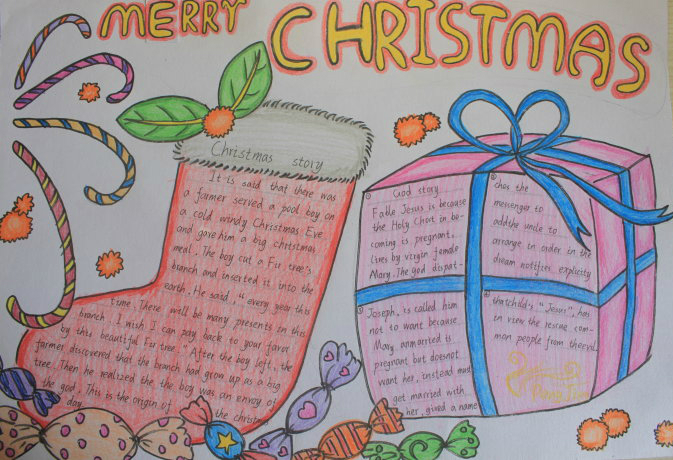 MERRY CHRISTMAS
Christmas story
It is said that there was
a farmer served a pool boy on
a cold windy Christmas Eve
and gave him a big christmas
meal. The boy cut a Fir tree's
branch and inserted it into the
earth. He said, "every year this
time, There will be many presents in this
branch. I wish I can pay back to your favor
by this beautiful Fir tree." After the boy left, the
farmer discovered that the branch had grow up as a big
tree. Then he realized the the boy was an envoy of
the god. This is the origin of the christmas
day.
① God story
Fable Jesus is because
the Holy Ghost in be-
coming is pregnant,
lives by virgin female
Mary. The god dispat-
② ches the
messenger to
addthe unile to
arrange in order in the
dream notifies explicity
③ Joseph, is called him
not to want because
Mary unmarried is
pregnant but doesnot
want her, instead must
get married with
her, gived a name
④ thatchild's "Jesus", has
in view the rescue com-
mon people from theevil.